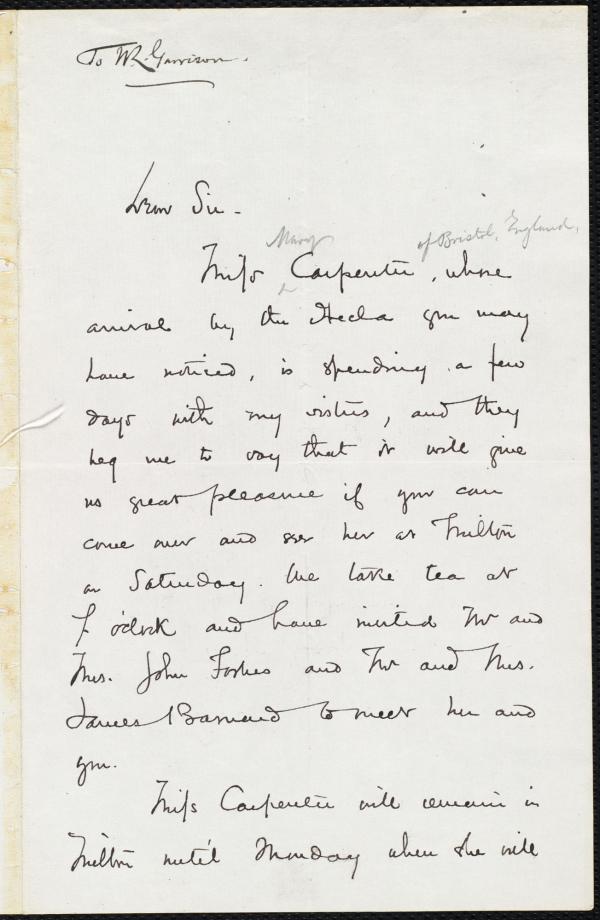 To W L Garrison.
Dear Sir -
Mary
of Bristol, England,
Miss Carpenter, whose
arrival by the Hecla you may
have noticed, is spending a few
days with my sisters, and they
beg me to say that it will give
us great pleasure if you can
come over and see her at Milton
on Saturday. We take tea at
7 o'clock and have invited Mr and
Mrs. John Forbes and Mr and Mrs.
James Barnard to meet her and
you.
Miss Carpenter will remain in
Milton until Monday when she will